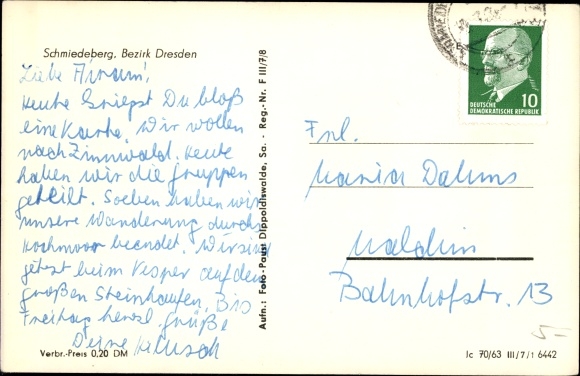 Schmiedeberg, Bezirk Dresden
Liebe
heute kriegst Du bloß
eine Karte. Wir wollen
nach Zinnwald. Heute
haben wir die Gruppen
geteilt. Soeben haben wir
unsere Wanderung durchs
Hochmoor beendet. Wir sind
jetzt beim Vesper auf dem
großen Steinhaufen. Bis
Freitag herzl. Grüße
Deine
Verbr.-Preis 0,20 DM
Aufn.: Foto-Paust Dippoldiswalde, Sa. · Reg.-Nr. F III/7/8
10
DEUTSCHE
DEMOKRATISCHE REPUBLIK
Frl.
Maria Dahms
Malchin
Bahnhofstr. 13
5-
Jc 70/63 III/7/1 6442